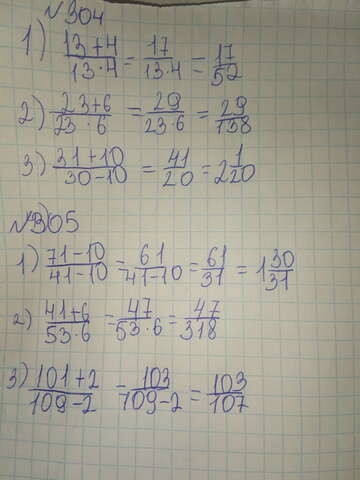 №304
1) 13+4/13·4 = 17/13·4 = 17/52
2) 23+6/23·6 = 29/23·6 = 29/138
3) 31+10/30-10 = 41/20 = 2 1/20
№305
1) 71-10/41-10 = 61/41-10 = 61/31 = 1 30/31
2) 41+6/53·6 = 47/53·6 = 47/318
3) 101+2/109-2 - 103/109-2 = 103/107